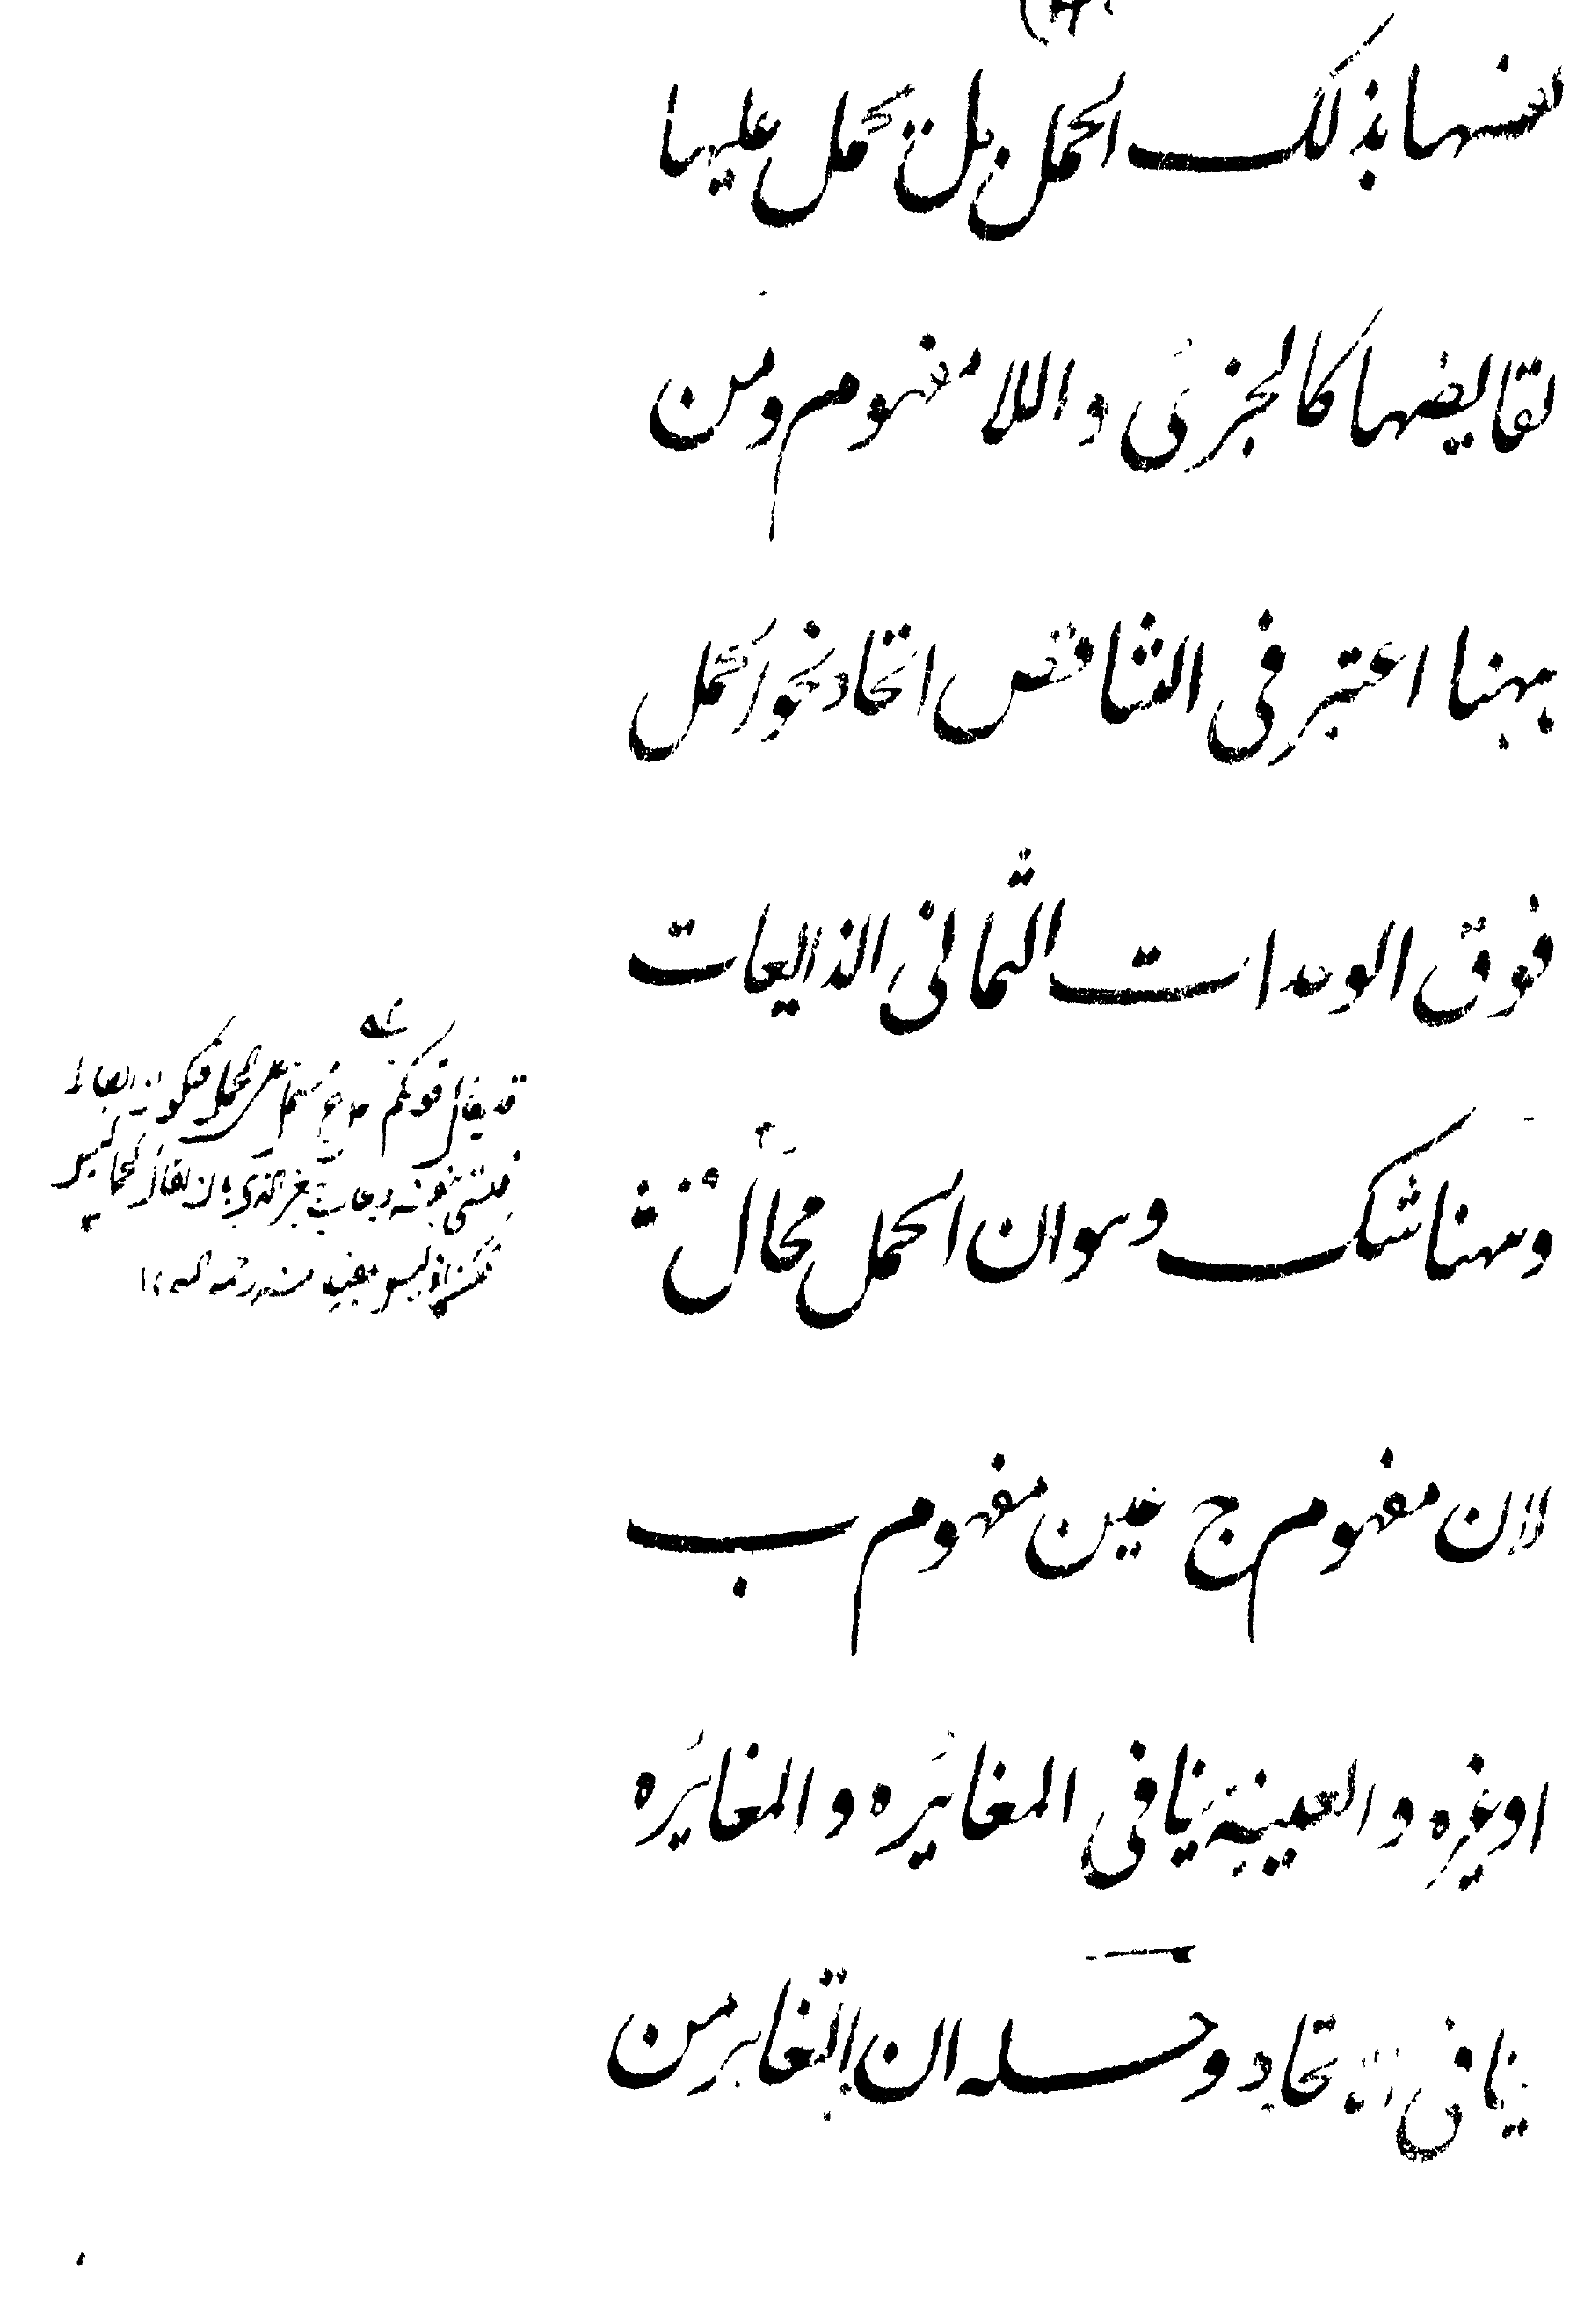 نفسها بذلك الحمل بل يحمل عليها
نقايضها كالجزئى واللا مفهوم ومن
ههنا اعتبر فى التناقض اتحاد نحو الحمل
فوق الوحدات الثمانى الذايعات
وههنا شك وهو ان الحمل محال
لان مفهوم ج عين مفهوم ب
او غيره والعينية ينافى المغائره والمغايره
ينافى الاتحاد وحله ان التغاير من
قد يقال قولكم الحمل
منه رحمه الله ١٢